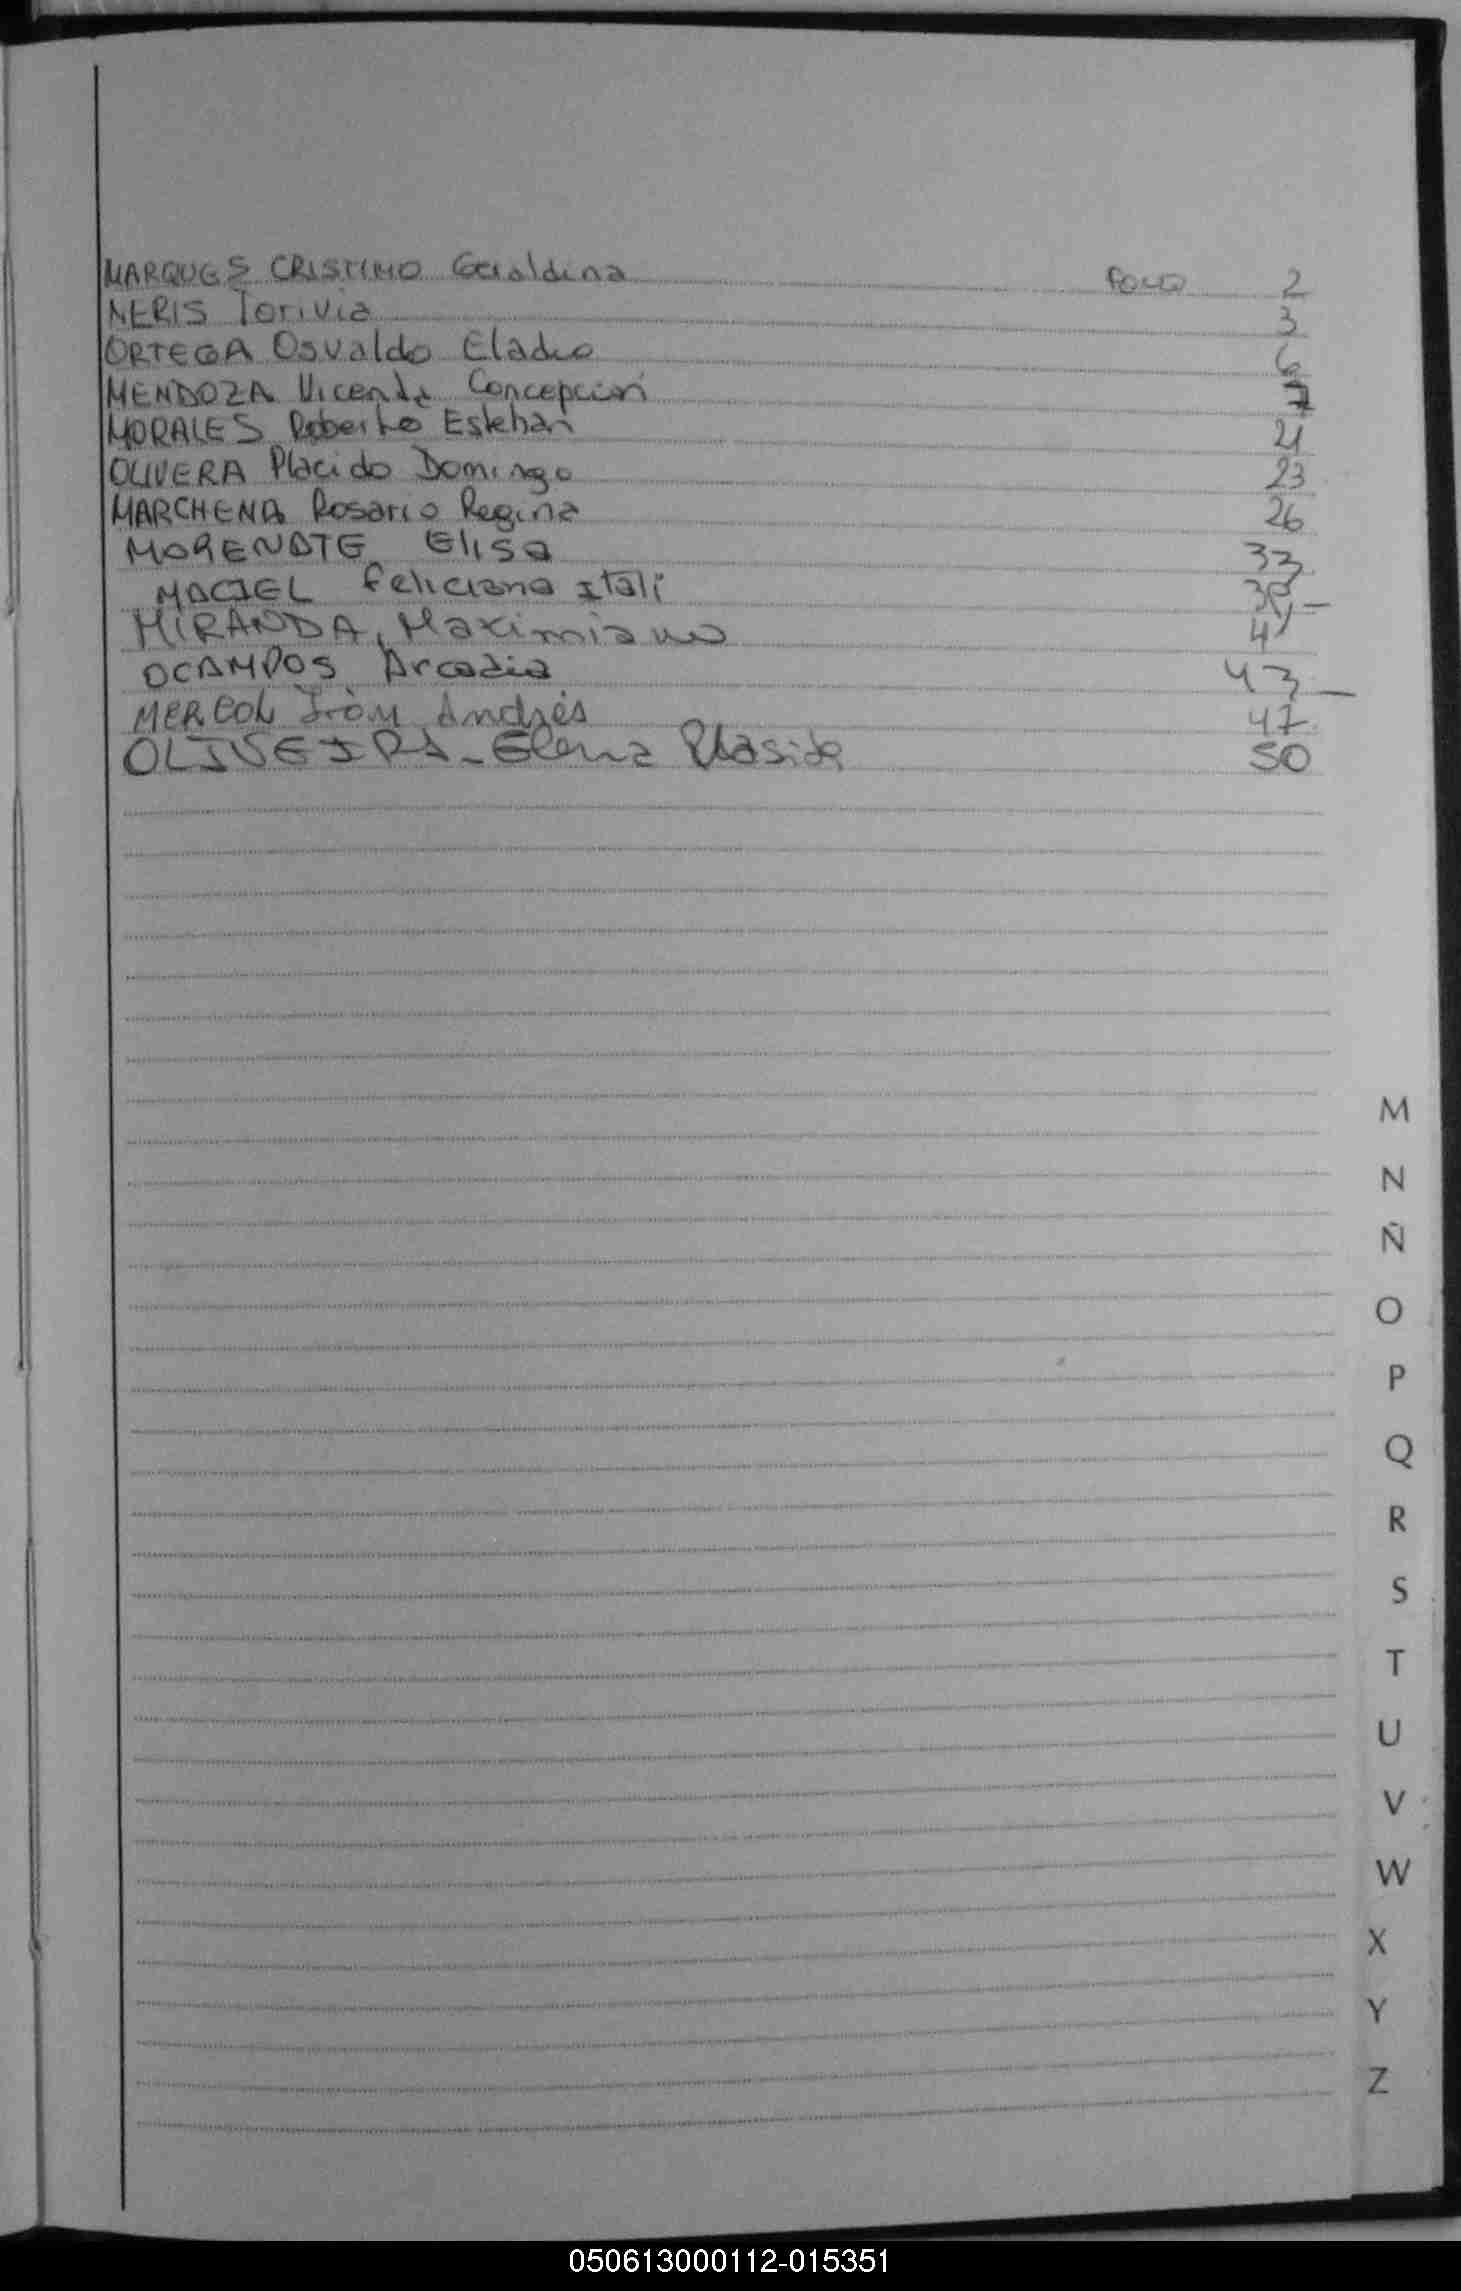 MARQUES CRISTINO Geraldina Folio 2
NERIS Torivia 3
ORTEGA Osvaldo Eladio 6
MENDOZA Vicenta Concepción 7
MORALES Roberto Esteban 21
OLIVERA Placido Domingo 23
MARCHENA Rosario Regina 26
MORENATE Elisa 33
MACIEL Feliciano Itali
MIRANDA, Maximiano 41
OCAMPOS Arcadia 43
Andrés 47
OLIVEIRA - Elena Plasida 50
M
N
Ñ
O
P
Q
R
S
T
U
V
W
X
Y
Z
050613000112-015351